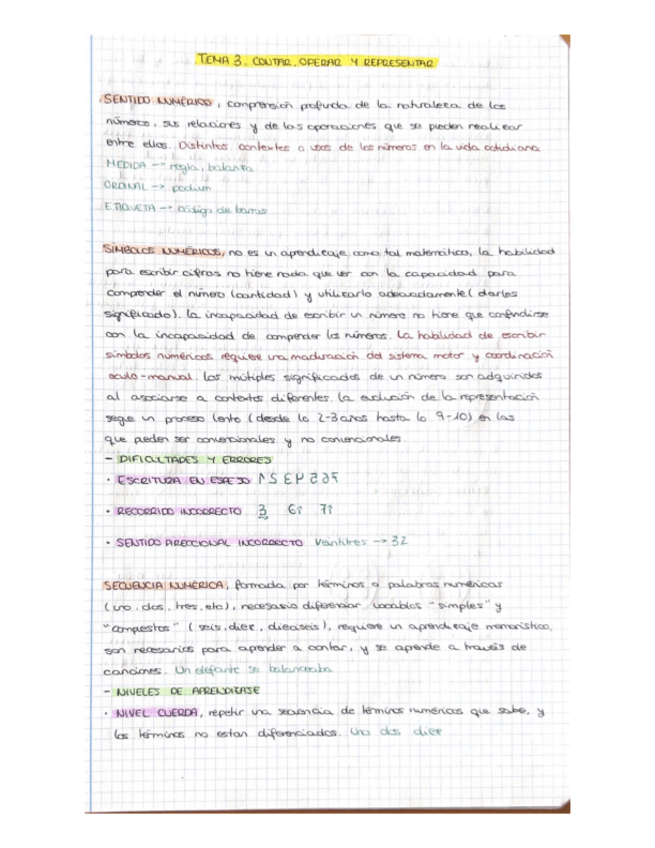 TEMA 3. CONTAR, OPERAR Y REPRESENTAR
SENTIDO NUMÉRICO, comprensión profunda de la naturaleza de los
números, sus relaciones y de las operaciones que se pueden realizar
entre ellos. Distintos contextos o usos de los números en la vida cotidiana
MEDIDA --> regla, balanza
ORDINAL --> podium
ETIQUETA --> código de barras
SÍMBOLOS NUMÉRICOS, no es un aprendizaje como tal matemático, la habilidad
para escribir cifras no tiene nada que ver con la capacidad para
comprender el número (cantidad) y utilizarlo adecuadamente (darles
significado). La incapacidad de escribir un número no tiene que confundirse
con la incapacidad de comprender los números. La habilidad de escribir
símbolos numéricos requiere una maduración del sistema motor y coordinación
oculo-manual. Los múltiples significados de un número son adquiridos
al asociarse a contextos diferentes. La evolución de la representación
sigue un proceso lento (desde lo 2-3 años hasta lo 9-10) en las
que pueden ser convencionales y no convencionales.
- DIFICULTADES Y ERRORES
· ESCRITURA EN ESPEJO
· RECORRIDO INCORRECTO 3 6? 7?
· SENTIDO DIRECCIONAL INCORRECTO Veintitres --> 32
SECUENCIA NUMÉRICA, formada por términos o palabras numéricas
(uno, dos, tres, etc), necesario diferenciar vocablos "simples" y
"compuestos" (seis, diez, dieciseis), requiere un aprendizaje memorístico,
son necesarios para aprender a contar, y se aprende a través de
canciones. Un elefante se balanceaba
- NIVELES DE APRENDIZAJE
· NIVEL CUERDA, repetir una secuencia de términos numéricos que sabe, y
los términos no estan diferenciados. Uno dos diez